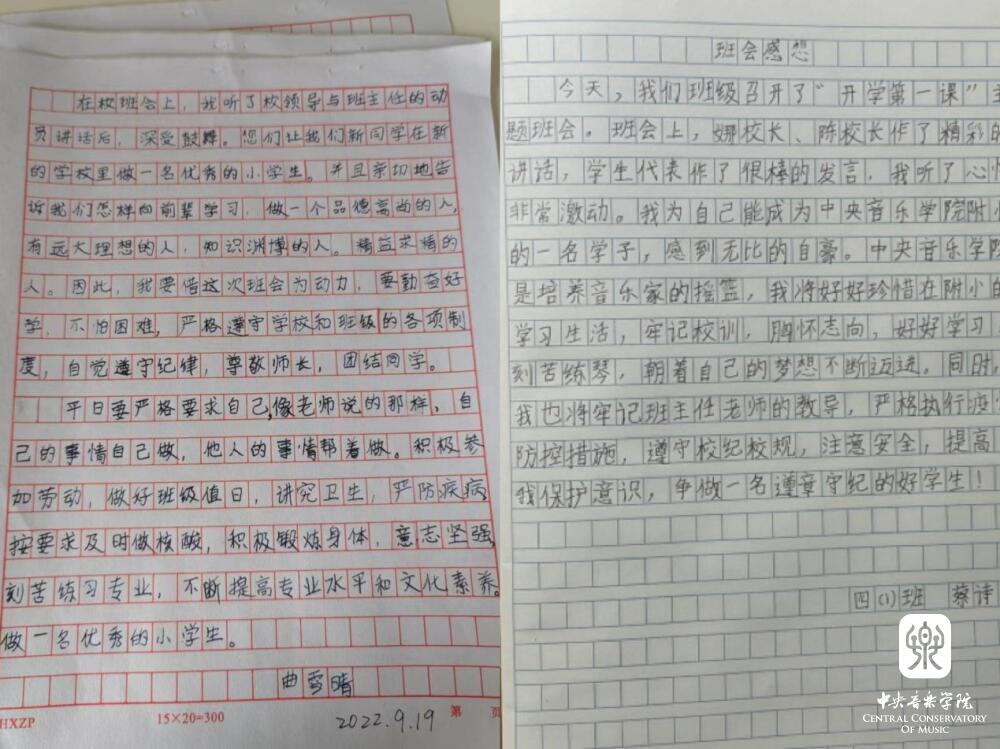 在校班会上，我听了校领导与班主任的动
员讲话后，深受鼓舞。您们让我们新同学在新
的学校里做一名优秀的小学生。并且亲切地告
诉我们怎样向前辈学习，做一个品德高尚的人，
有远大理想的人，知识渊博的人。精益求精的
人。因此，我要借这次班会为动力，要勤奋好
学，不怕困难，严格遵守学校和班级的各项制
度，自觉遵守纪律，尊敬师长，团结同学。
平日要严格要求自己，像老师说的那样，自
己的事情自己做，他人的事情帮着做。积极参
加劳动，做好班级值日，讲究卫生，严防疾病，
按要求及时做核酸，积极锻炼身体，意志坚强，
刻苦练习专业，不断提高专业水平和文化素养。
做一名优秀的小学生。
曲雪晴
HXZP 15×20=300 2022.9.19 第 页
班会感想
今天，我们班级召开了“开学第一课”主
题班会。班会上，娜校长、陈校长作了精彩的
讲话，学生代表作了很棒的发言，我听了心情
非常激动。我为自己能成为中央音乐学院附小
的一名学子，感到无比的自豪。中央音乐学院
是培养音乐家的摇篮，我将好好珍惜在附小的
学习生活，牢记校训，胸怀志向，好好学习，
刻苦练琴，朝着自己的梦想不断迈进。同时，
我也将牢记班主任老师的教导，严格执行疫情
防控措施，遵守校纪校规，注意安全，提高
我保护意识，争做一名遵章守纪的好学生！
四(1)班 蔡诗
中央音乐学院
CENTRAL CONSERVATORY
OF MUSIC